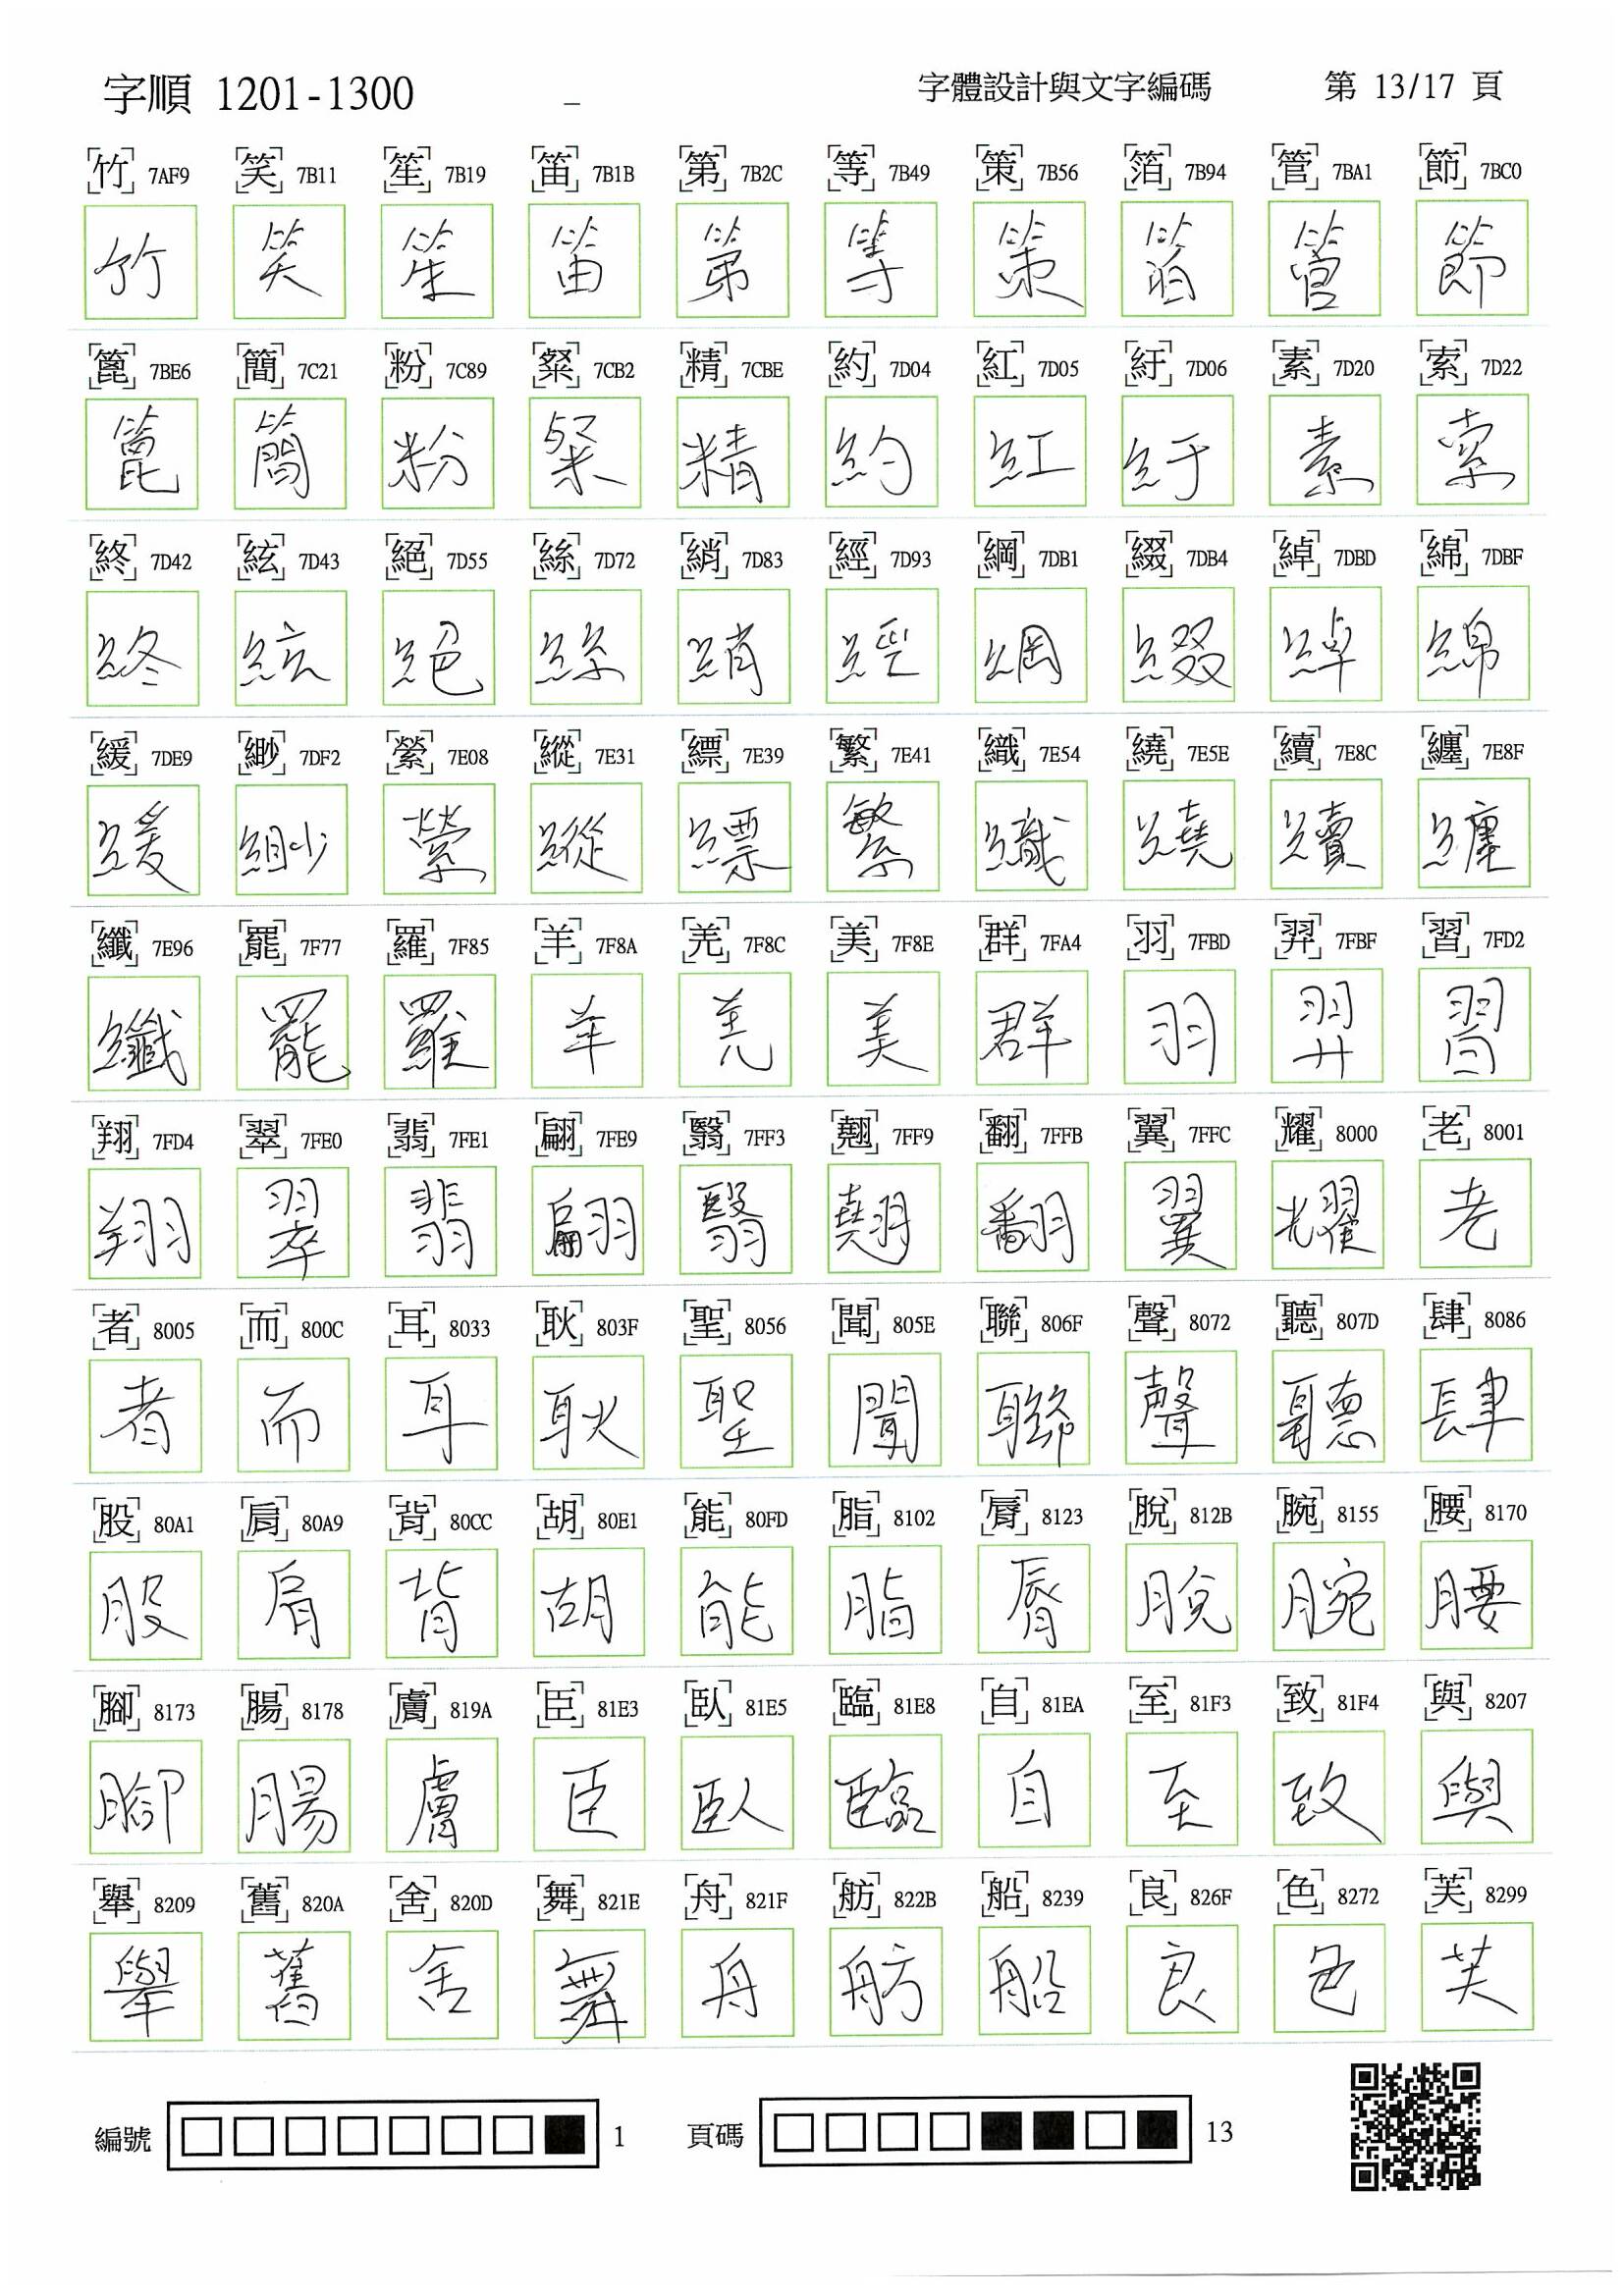 字順 1201-1300 _ 字體設計與文字編碼 第 13/17 頁
竹 7AF9 笑 7B11 笙 7B19 笛 7B1B 第 7B2C 等 7B49 策 7B56 箔 7B94 管 7BA1 節 7BC0
竹 笑 笙 笛 第 等 策 箔 管 節
篦 7BE6 簡 7C21 粉 7C89 粲 7CB2 精 7CBE 約 7D04 紅 7D05 紆 7D06 素 7D20 索 7D22
篦 簡 粉 粲 精 約 紅 紆 素 索
終 7D42 絃 7D43 絕 7D55 絲 7D72 綃 7D83 經 7D93 綱 7DB1 綴 7DB4 綽 7DBD 綿 7DBF
終 絃 絕 絲 綃 經 綱 綴 綽 綿
緩 7DE9 緲 7DF2 縈 7E08 縱 7E31 縹 7E39 繁 7E41 織 7E54 繞 7E5E 續 7E8C 纏 7E8F
緩 緲 縈 縱 縹 繁 織 繞 續 纏
纖 7E96 罷 7F77 羅 7F85 羊 7F8A 羌 7F8C 美 7F8E 群 7FA4 羽 7FBD 羿 7FBF 習 7FD2
纖 罷 羅 羊 羌 美 群 羽 羿 習
翔 7FD4 翠 7FE0 翡 7FE1 翩 7FE9 翳 7FF3 翹 7FF9 翻 7FFB 翼 7FFC 耀 8000 老 8001
翔 翠 翡 翩 翳 翹 翻 翼 耀 老
者 8005 而 800C 耳 8033 耿 803F 聖 8056 聞 805E 聯 806F 聲 8072 聽 807D 肆 8086
者 而 耳 耿 聖 聞 聯 聲 聽 肆
股 80A1 肩 80A9 背 80CC 胡 80E1 能 80FD 脂 8102 脣 8123 脫 812B 腕 8155 腰 8170
股 肩 背 胡 能 脂 脣 脫 腕 腰
腳 8173 腸 8178 膚 819A 臣 81E3 臥 81E5 臨 81E8 自 81EA 至 81F3 致 81F4 與 8207
腳 腸 膚 臣 臥 臨 自 至 致 與
舉 8209 舊 820A 舍 820D 舞 821E 舟 821F 舫 822B 船 8239 良 826F 色 8272 芙 8299
舉 舊 舍 舞 舟 舫 船 良 色 芙
編號 1 頁碼 13